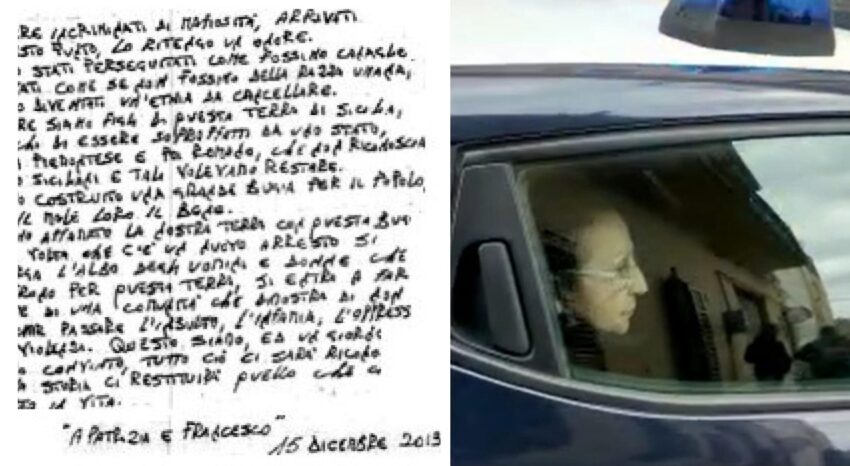 RE INCRIMINATI DI MAFIOSITÀ, ARRIVATI
STO PUNTO, LO RITENGO UN ONORE.
STATI PERSEGUITATI COME FOSSIMO CANAGLIE
ATI COME SE NON FOSSIMO DELLA RAZZA UMANA,
O DIVENTATI UN'ETNIA DA CANCELLARE.
RE SIAMO FIGLI DI QUESTA TERRA DI SICILIA,
DI ESSERE SOPRAFFATTI DA UNO STATO,
PIEMONTESE E POI ROMANO, CHE NON RICONOSCIA
SICILIANI E TALI VOLEVANO RESTARE.
O COSTRUITO UNA GRANDE BUGIA PER IL POPOLO,
IL MALE LORO IL BENE.
NO AFFAMATO LA NOSTRA TERRA CON QUESTA BUGI
VOLTA CHE C'E' UN NUOVO ARRESTO SI
RGA L'ALBO DEGLI UOMINI E DONNE CHE
RONO PER QUESTA TERRA, SI ENTRA A FAR
E DI UNA COMUNITÀ CHE DIMOSTRA DI NON
PASSARE L'INSULTO, L'INFAMIA, L'OPPRESS
VIOLENZA. QUESTO SIAMO, ED UN GIORNO
O CONVINTO, TUTTO CIÒ CI SARÀ RICONO
A STORIA CI RESTITUIRÀ QUELLO CHE CI
TO IN VITA.
"A PATRIZIA E FRANCESCO"
15 DICEMBRE 2013